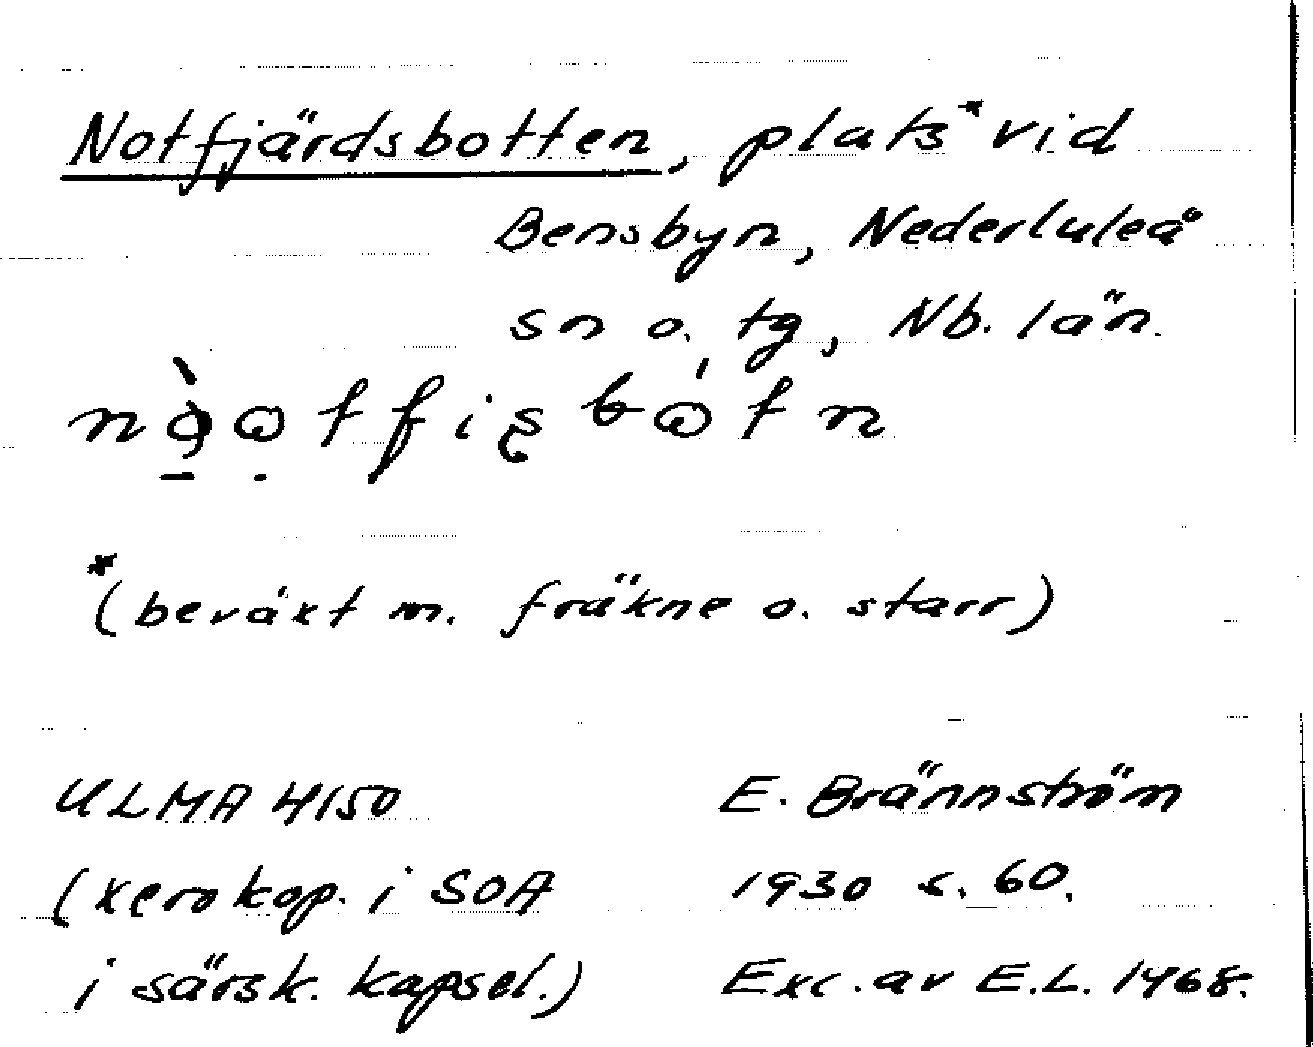 Notfjärdsbotten, plats* vid
Bensbyn, Nederluleå
sn o. tg, Nb. län.
*(beväxt m. fräkne o. starr)
ULMA 4150
(xerokop. i SOA
i särsk. kapsel.)
E. Brännström
1930 s. 60.
Exc. av E.L. 1968.